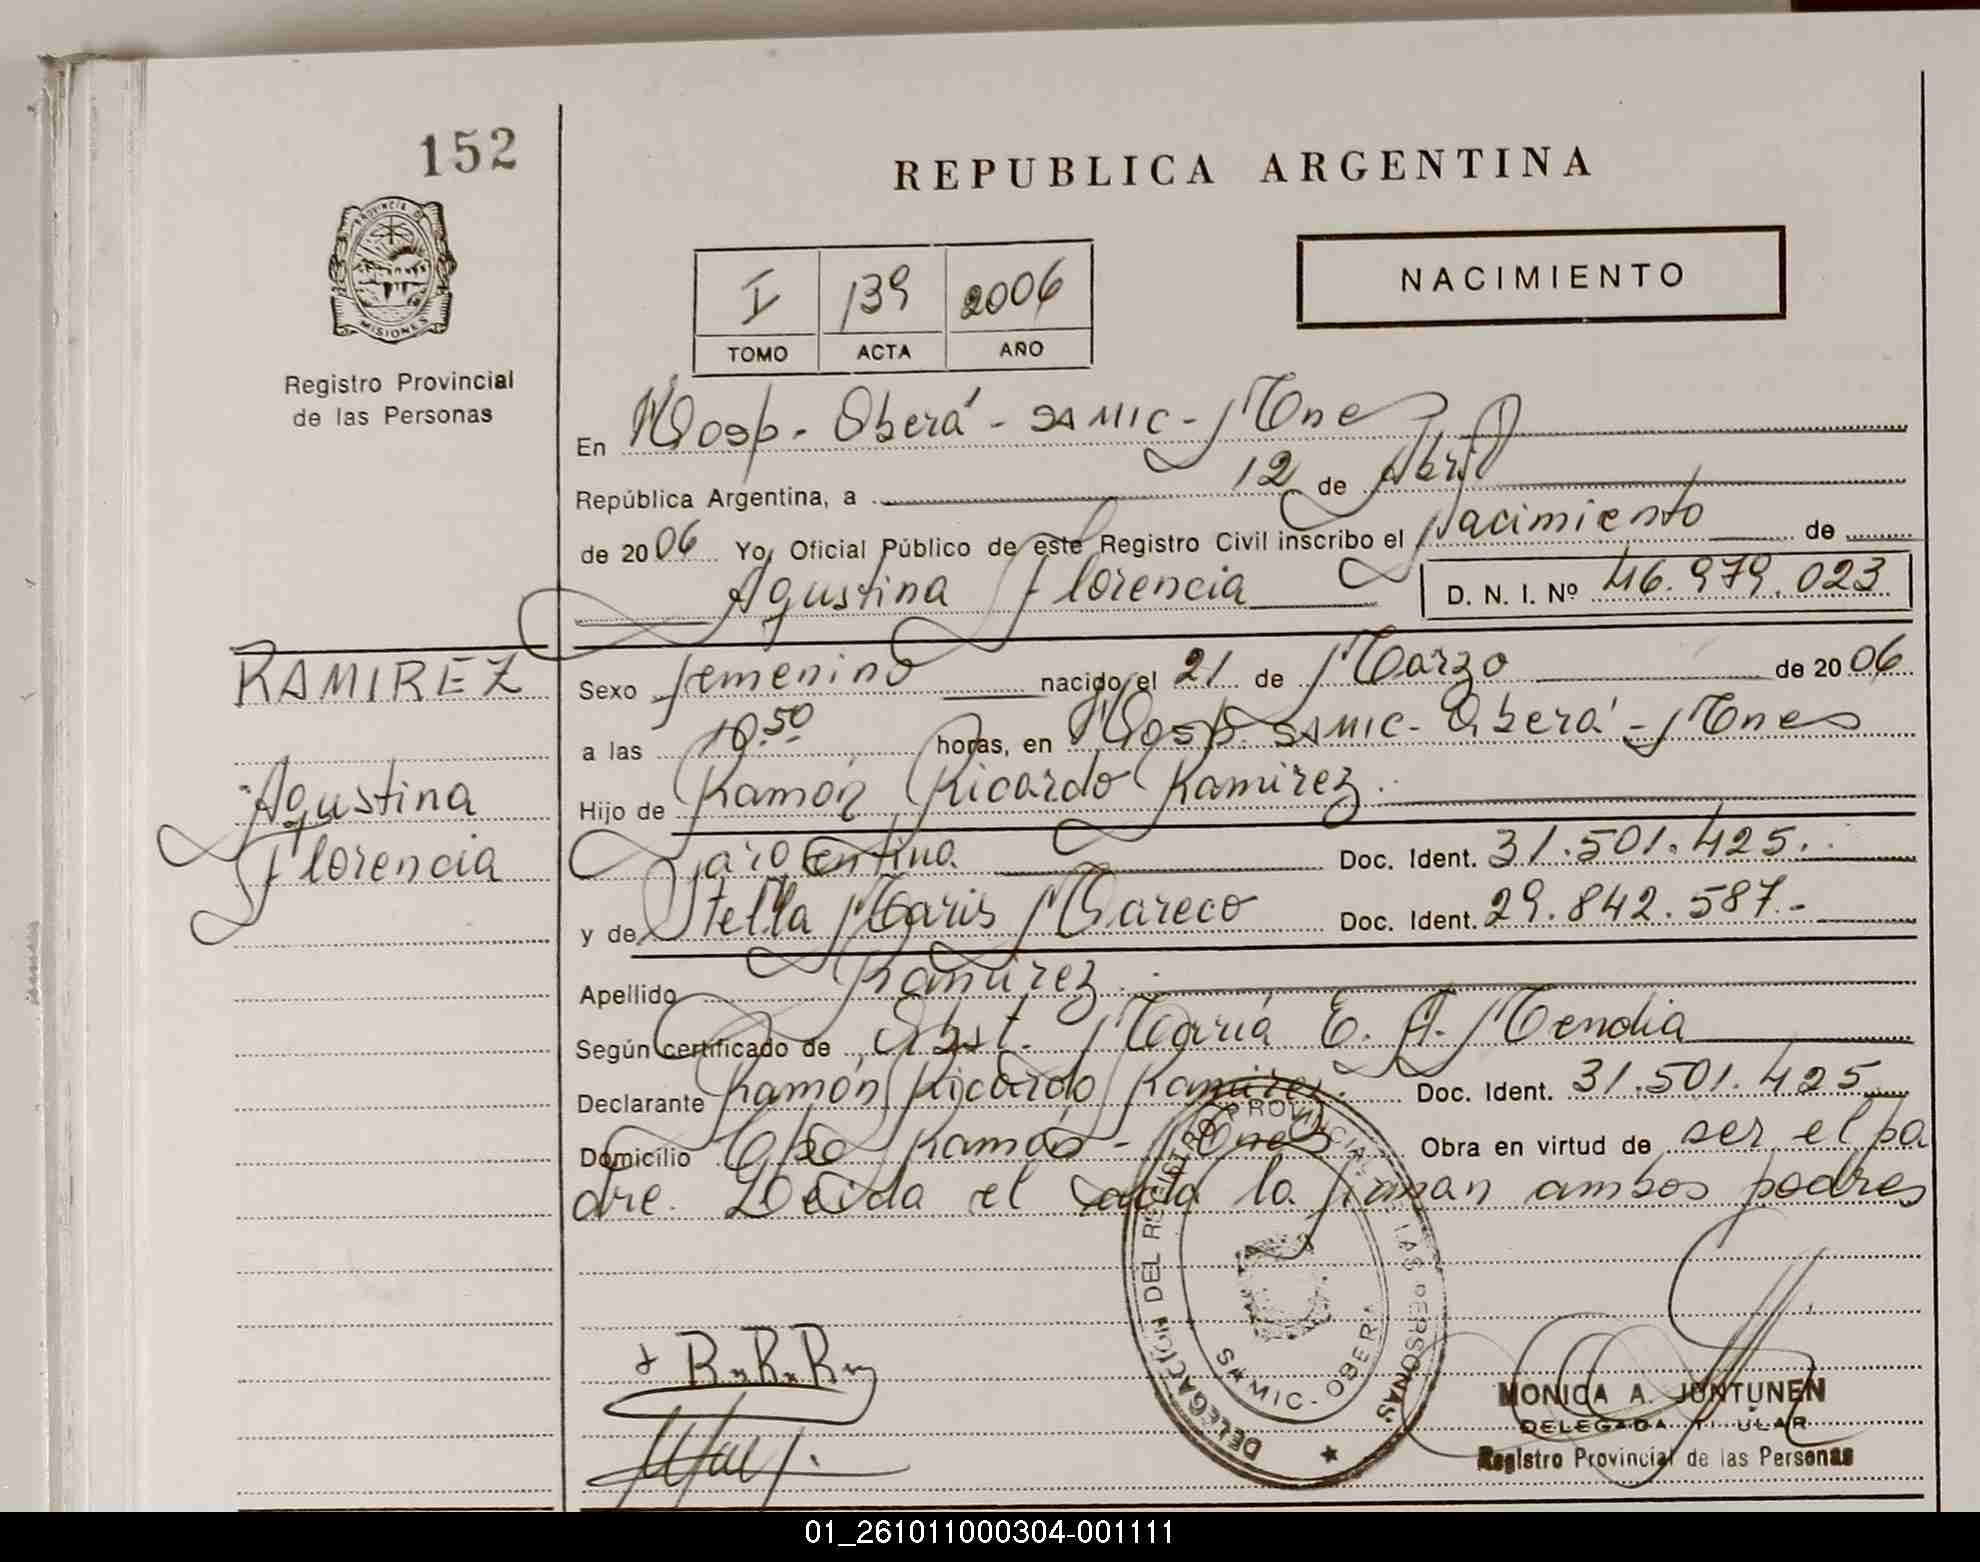 152
REPUBLICA ARGENTINA
PROVINCIA DE
MISIONES
Registro Provincial
de las Personas
I 139 2006
TOMO ACTA AÑO
NACIMIENTO
En Hosp. Oberá - SAMIC - Mnes
República Argentina, a 12 de Abril
de 2006 Yo, Oficial Público de este Registro Civil inscribo el Nacimiento de
Agustina Florencia D. N. I. Nº 46.979.023
RAMIREZ
Agustina
Florencia
Sexo femenino nacido el 21 de Marzo de 2006
a las 10.50 horas, en Hosp. SAMIC - Oberá - Mnes
Hijo de Ramón Ricardo Ramirez.
argentino Doc. Ident. 31.501.425.
y de Stella Maris Mareco Doc. Ident. 29.842.587.-
Apellido Ramirez.
Según certificado de Obst. María E. A. Mendia
Declarante Ramón Ricardo Ramirez. Doc. Ident. 31.501.425
Domicilio Cpo Ramón - Mnes Obra en virtud de ser el pa
dre. Leida el acta la firman ambos padres
R.R.R
DELEGACION DEL REGISTRO PROVINCIAL DE LAS PERSONAS
SAMIC - OBERA
MONICA A. JUNTUNEN
DELEGADA TITULAR
Registro Provincial de las Personas
01_261011000304-001111